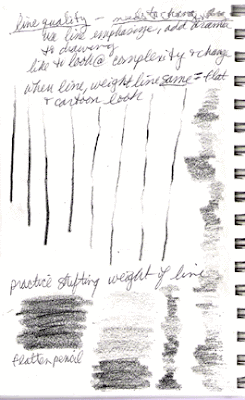 line quality – needs to change,
use line emphasize, add drama
to drawing
like to look @ complexity & change
when line, weight line same = flat
& cartoon look
practice shifting weight of line
flatten pencil